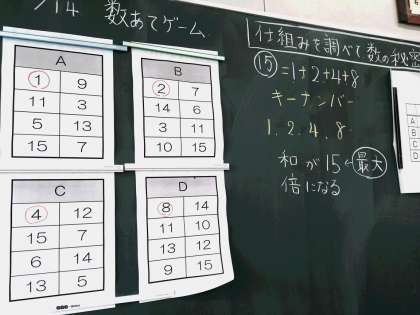 /14 数あてゲーム
仕組みを調べて数の秘密
A
1 9
11 3
5 13
15 7
B
2 7
14 6
3 11
10 15
C
4 12
15 7
6 14
13 5
D
8 14
11 10
13 12
9 15
15=1+2+4+8
キーナンバー
1. 2. 4. 8.
和が15←最大
倍になる
A
B
C